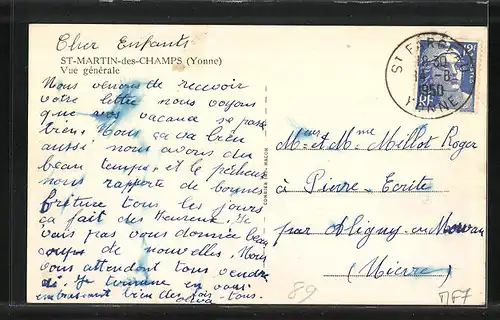 Cher Enfants
ST-MARTIN-des-CHAMPS (Yonne)
Vue générale
Nous venons de recevoir
votre lettre nous voyons
que vos vacance se passe
bien. Nous ça va bien
aussi nous avons du
beau temps et le pêcheur
nous rapporte de bonnes
friture tous les jours
ça fait des Heureux. Je
vais pas vous donnée beau
coups de nouvelles. Nous
vous attendont tous vendre
di. Je termine en vous
embrassant bien des fois
tous.
ST FARGEAU
18-30
-8
1950
YONNE
RF
COMBIER IMP. MACON
Mr et Mme Millot Roger
à Pierre-Ecrite
par Alligny-en-Morvan
(Nièvre)
89